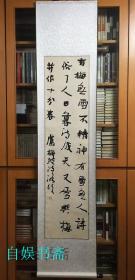 有梅無雪不精神有雪無詩
俗了人日暮詩成天又雪與梅
并作十分春 盧梅坡詩
自娱书斋